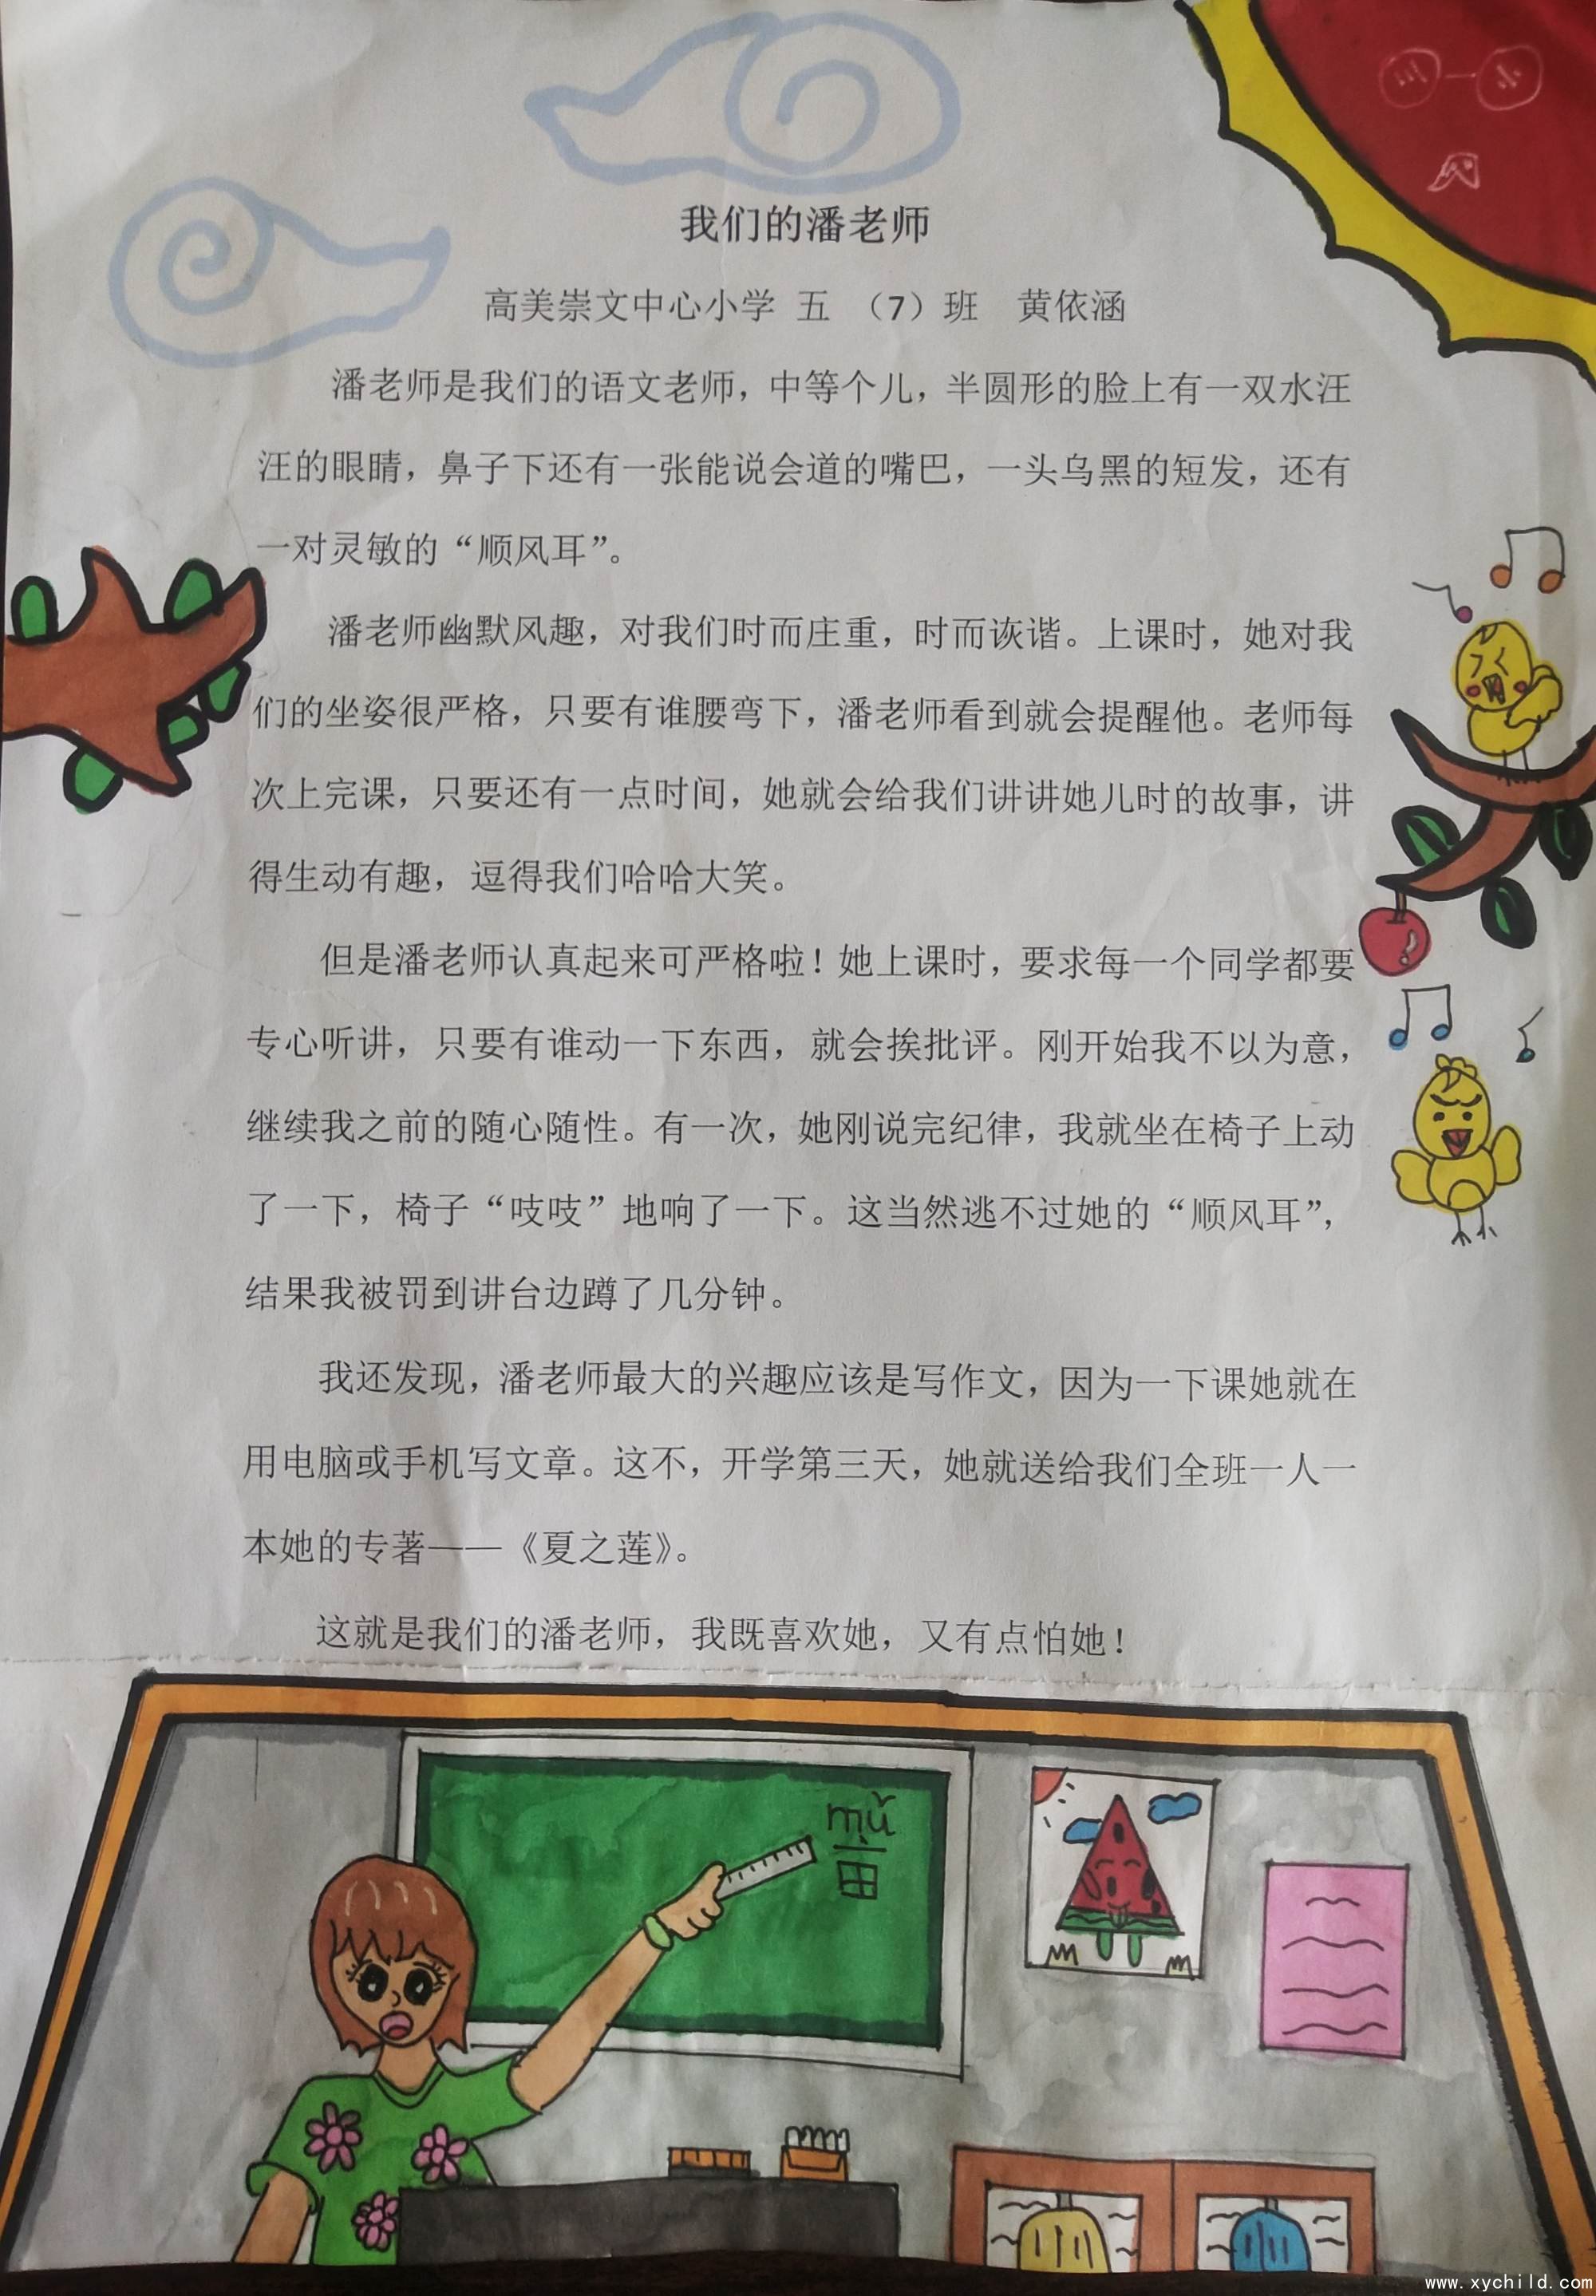 我们的潘老师
高美崇文中心小学 五 （7）班 黄依涵
潘老师是我们的语文老师，中等个儿，半圆形的脸上有一双水汪
汪的眼睛，鼻子下还有一张能说会道的嘴巴，一头乌黑的短发，还有
一对灵敏的“顺风耳”。
潘老师幽默风趣，对我们时而庄重，时而诙谐。上课时，她对我
们的坐姿很严格，只要有谁腰弯下，潘老师看到就会提醒他。老师每
次上完课，只要还有一点时间，她就会给我们讲讲她儿时的故事，讲
得生动有趣，逗得我们哈哈大笑。
但是潘老师认真起来可严格啦！她上课时，要求每一个同学都要
专心听讲，只要有谁动一下东西，就会挨批评。刚开始我不以为意，
继续我之前的随心随性。有一次，她刚说完纪律，我就坐在椅子上动
了一下，椅子“吱吱”地响了一下。这当然逃不过她的“顺风耳”，
结果我被罚到讲台边蹲了几分钟。
我还发现，潘老师最大的兴趣应该是写作文，因为一下课她就在
用电脑或手机写文章。这不，开学第三天，她就送给我们全班一人一
本她的专著——《夏之莲》。
这就是我们的潘老师，我既喜欢她，又有点怕她！
mǔ
www.xychild.com